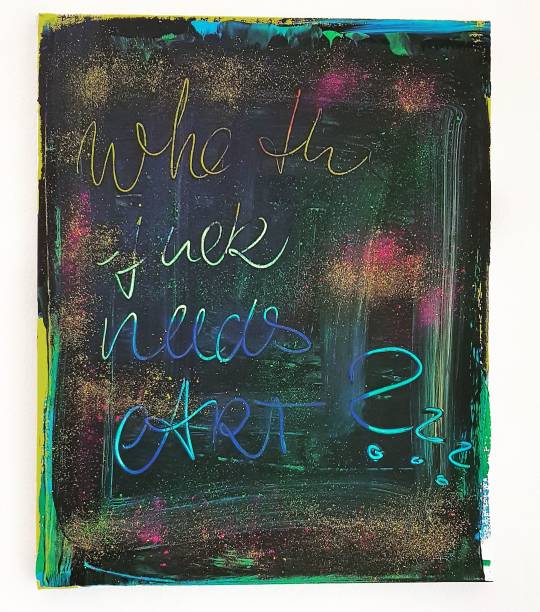 who th
fuck
needs
ART ???